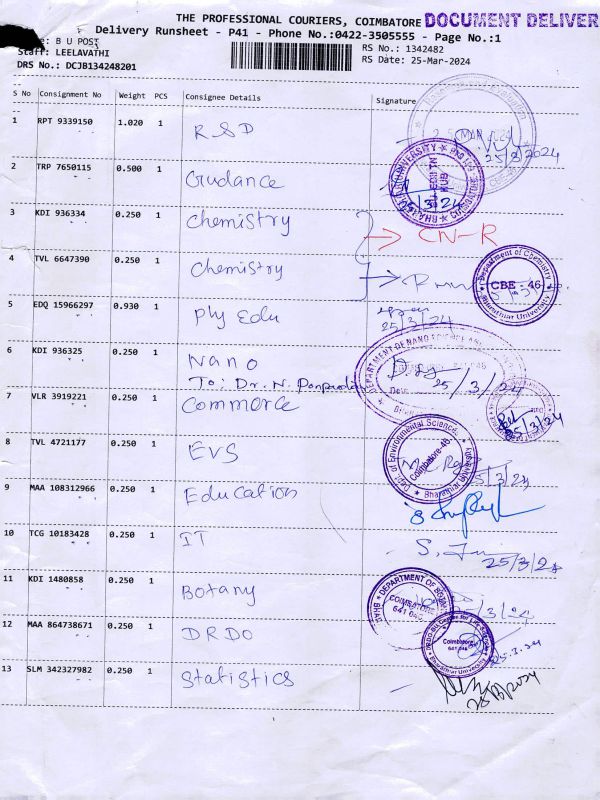 THE PROFESSIONAL COURIERS, COIMBATORE DOCUMENT DELIVER
Delivery Runsheet - P41 - Phone No.:0422-3505555 - Page No.:1
: B U POST
RS No.: 1342482
Staff: LEELAVATHI
RS Date: 25-Mar-2024
DRS No.: DCJB134248201
S No Consignment No Weight PCS Consignee Details Signature
1 RPT 9339150 1.020 1 RSD
25/3/2024
2 TRP 7650115 0.500 1 Guidance
25/3/24
3 KDI 936334 0.250 1 Chemistry
CN-R
4 TVL 6647390 0.250 1 Chemistry
Department of Chemistry
CBE - 46
Bharathiar University
5 EDQ 15966297 0.930 1 Phy Edu
25/3/24
6 KDI 936325 0.250 1 Nano
To: Dr. N. Ponpandian
DEPARTMENT OF NANO SCIENCE AND
Date
25/3/24
7 VLR 3919221 0.250 1 Commerce
25/3/24
8 TVL 4721177 0.250 1 EVS
Dept of Environmental Science
Coimbatore-46
Bharathiar University
25/3/24
9 MAA 108312966 0.250 1 Education
10 TCG 10183428 0.250 1 IT
25/3/24
11 KDI 1480858 1 Botany
0.250
DEPARTMENT OF BOTANY
COIMBATORE
641 046
25/3/24
12 MAA 864738671 0.250 1 DRDO
Coimbatore
641 046
25.3.24
13 SLM 342327982 0.250 1 Statistics
25/3/2024